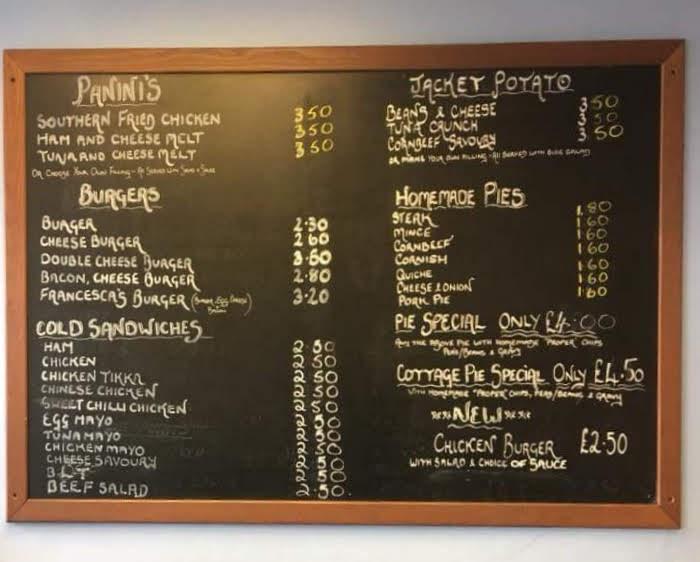 PANINI'S
SOUTHERN FRIED CHICKEN 3 50
HAM AND CHEESE MELT 3 50
TUNA AND CHEESE MELT 3 50
OR CHOOSE YOUR OWN FILLING - ALL SERVED WITH
BURGERS
BURGER 2·30
CHEESE BURGER 2 60
DOUBLE CHEESE BURGER 3·60
BACON, CHEESE BURGER 2·80
FRANCESCA'S BURGER (BURGER, EGG, CHEESE BACON) 3·20
COLD SANDWICHES
HAM 2·50
CHICKEN 2 50
CHICKEN TIKKA 2 50
CHINESE CHICKEN 2 50
SWEET CHILLI CHICKEN 2 50
EGG MAYO 2 50
TUNA MAYO 2 50
CHICKEN MAYO 2 50
CHEESE SAVOURY 2 50
BLT 2 50
BEEF SALAD 2·50
JACKET POTATO
BEANS & CHEESE 3 50
TUNA CRUNCH 3 50
CORNBEEF SAVOURY 3 50
OR YOUR OWN FILLING - ALL SERVED WITH SIDE SALAD
HOMEMADE PIES
STEAK 1.80
MINCE 1·60
CORNBEEF 1·60
CORNISH 1·60
QUICHE 1·60
CHEESE & ONION 1·60
PORK PIE 1·60
PIE SPECIAL ONLY £4·00
ANY THE ABOVE PIE WITH HOMEMADE "PROPER" CHIPS
PEAS/BEANS & GRAVY
COTTAGE PIE SPECIAL ONLY £4.50
WITH HOMEMADE "PROPER" CHIPS, PEAS/BEANS & GRAVY
NEW
CHICKEN BURGER £2·50
WITH SALAD & CHOICE OF SAUCE